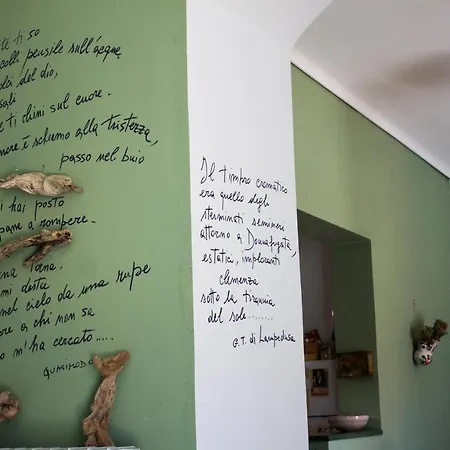 te ti so
colli pensile sull'acque
del dio,
ti chini sul cuore.
è schermo alla tristezza,
passo nel buio
hai posto
pane a rompere.
Tindari
mi desta
nel cielo da una rupe
a chi non sa
m'ha cercato.....
QUASIMODO
Il timbro cromatico
era quello degli
sterminati seminerî
attorno a Donnafugata,
estatici, imploranti
clemenza
sotto la tirannia
del sole........
G.T. di Lampedusa